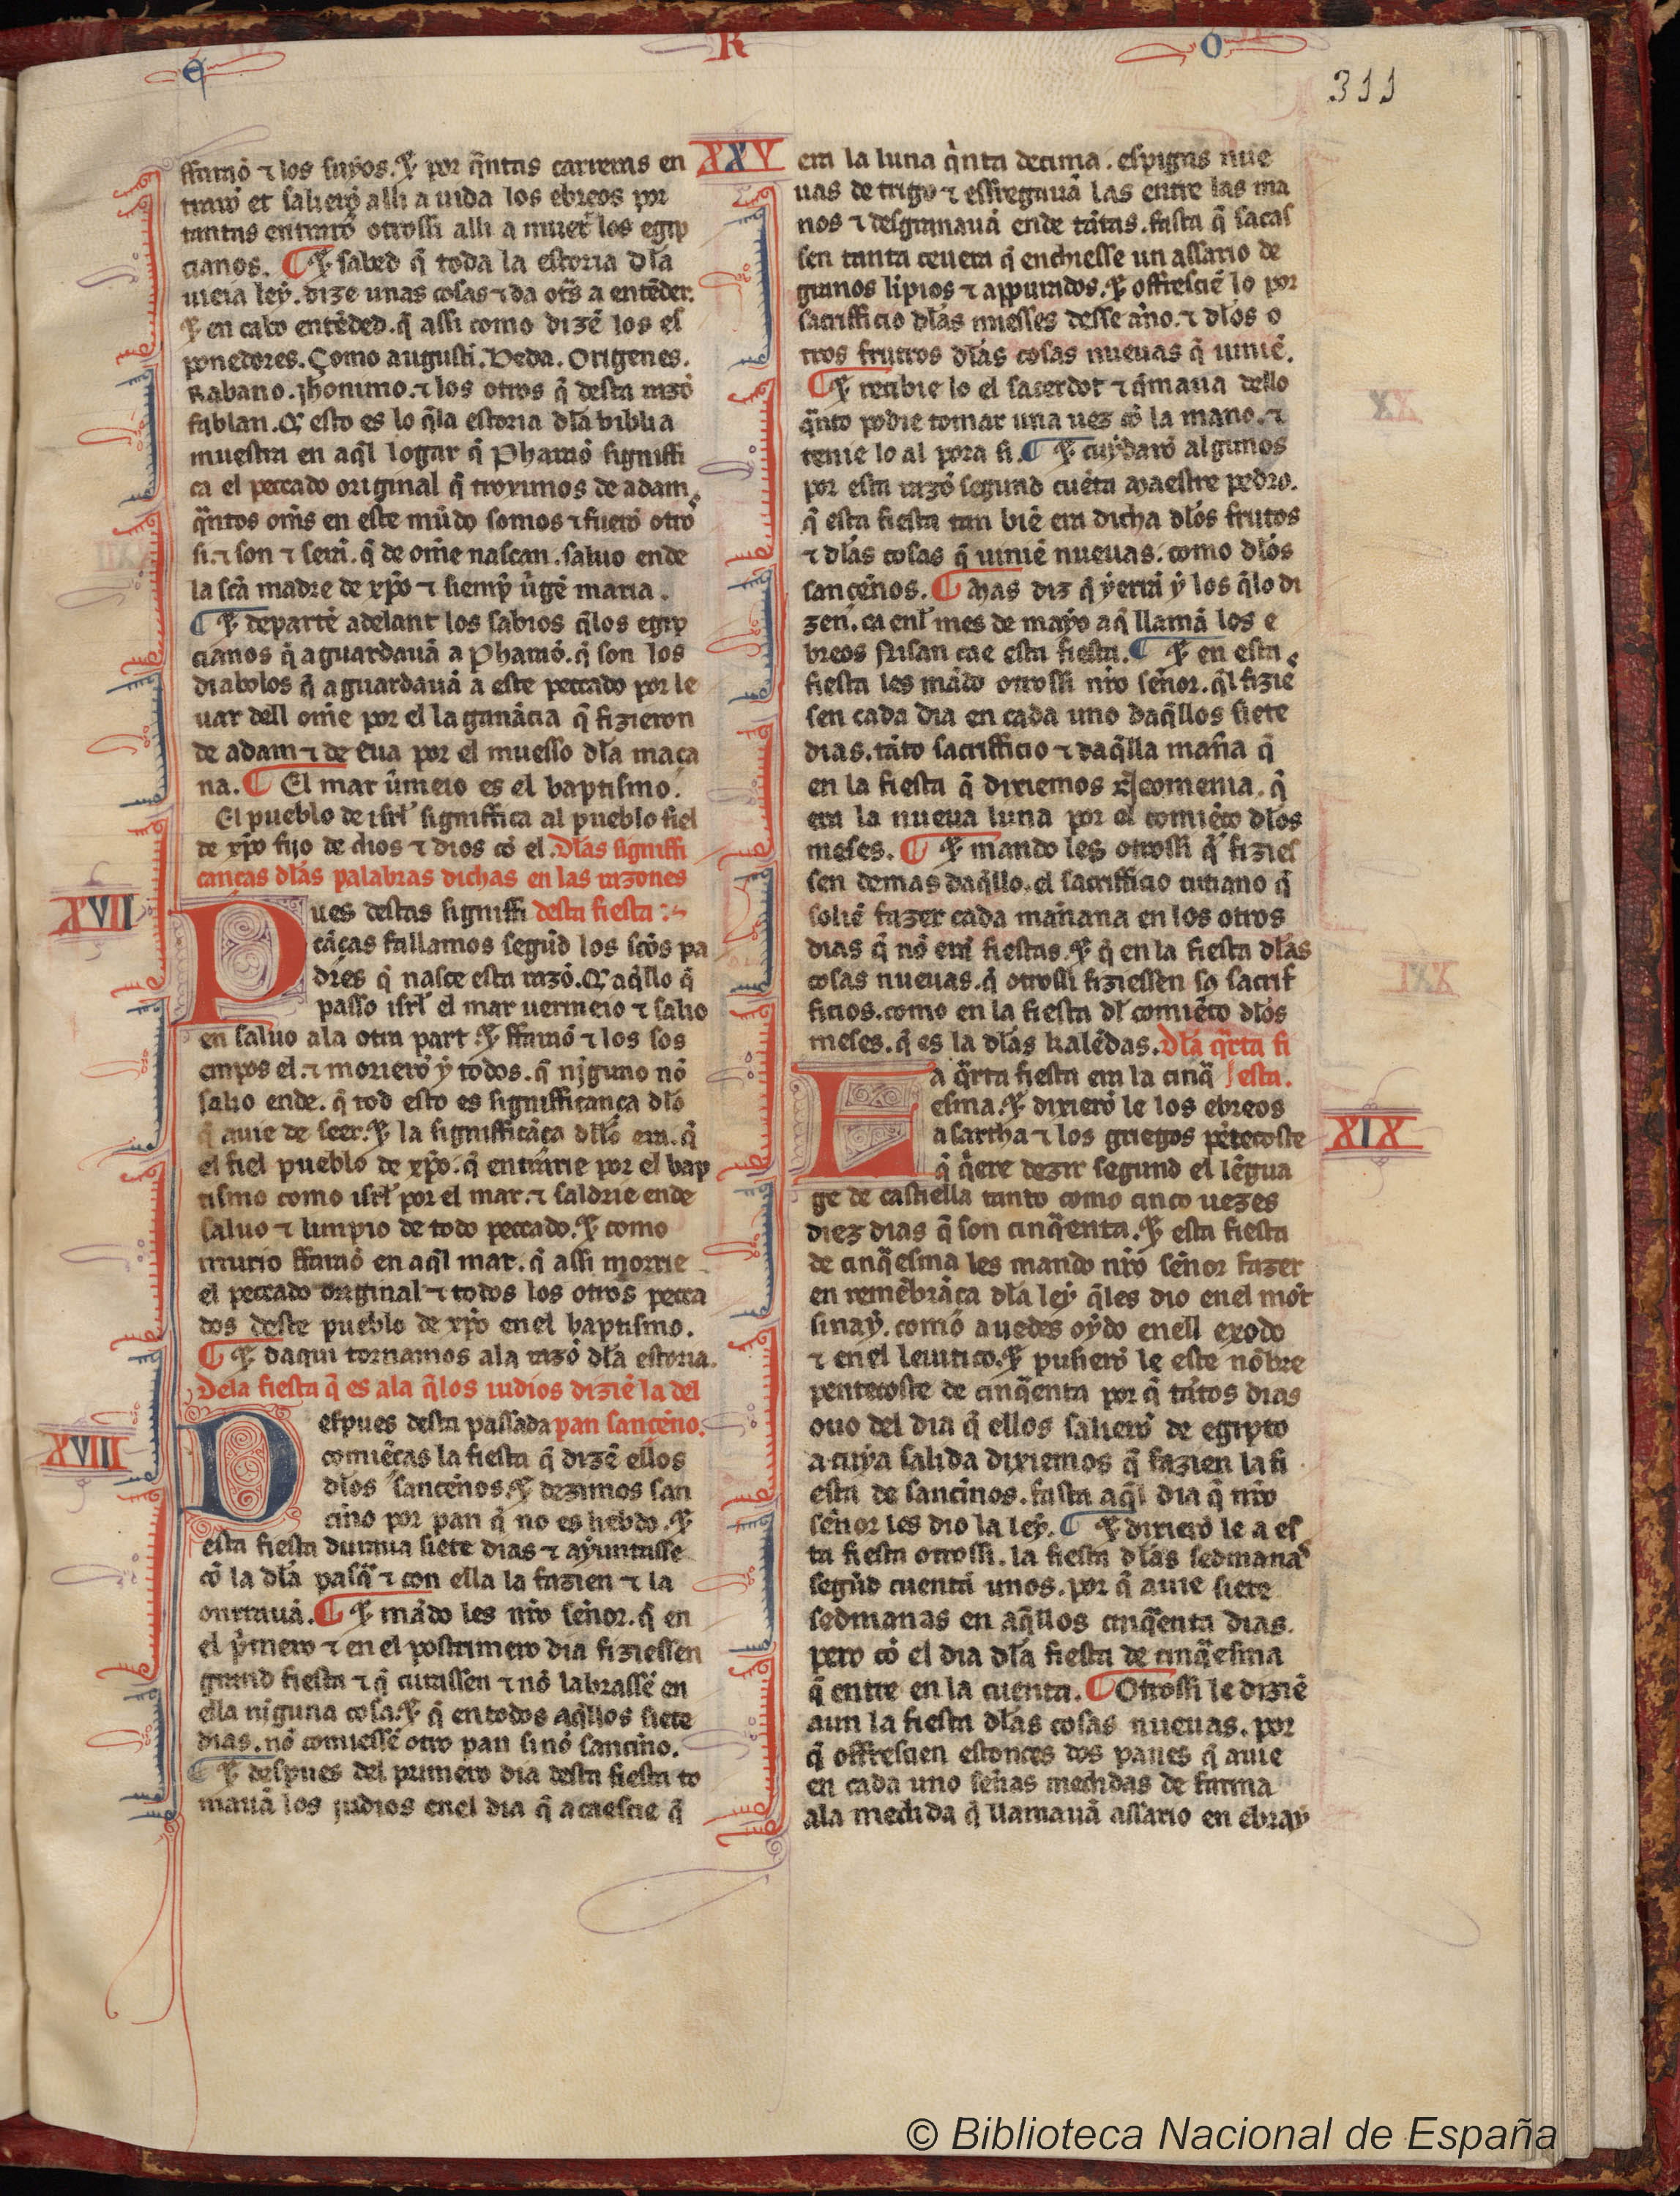 R O
311
ffaraō ⁊ los suyos. E por q̃ntas carreras en
traro et salierō alli a uida los ebreos por
tantas entrarō otrossi alli a muert los egip
cianos. ¶ E sabed q̃ toda la estoria dl̃a
uieia ley. dize unas cosas ⁊ da ot̃s a entēder.
E en cabo entēded. q̃ assi como dizē los es
ponedores. Como augustī. Beda. Origenes.
Rabano. jheronimo. ⁊ los otros q̃ desta razō
fablan. Q̃ esto es lo q̃la estoria dl̃a biblia
muestra en aq̃l logar q̃ Pharaō signiffi
ca el peccado original q̃ troximos de adam
q̃ntos om̃s en este mūdo somos ⁊ fuerō otro
si. ⁊ son ⁊ serā. q̃ de om̃e nascan. saluo ende
la sc̃a madre de xp̃o ⁊ siemp̃ uirgē maria.
¶ E departē adelant los sabios q̃los egip
cianos q̃ aguardauā a Pharaō. q̃ son los
diabolos q̃ aguardauā a este peccado por le
uar dell om̃e por el la ganācia q̃ fizieron
de adam ⁊ de Eua por el muesso dl̃a maça
na. ¶ El mar ūmeio es el baptismo.
El pueblo de isrl̃ signiffica al pueblo fiel
de xp̃o fijo de dios ⁊ dios cō el. Dl̃as signiffi
canças dl̃as palabras dichas en las razones
XVII
Pues destas signiffi desta fiesta
cāças fallamos segūd los scōs pa
dres q̃ nasce esta razō. Q̃ aq̃llo q̃
passo isrl̃ el mar uermeio ⁊ salio
en saluo ala otra part. E ffaraō ⁊ los sos
en pos el. ⁊ morierō y todos. q̃ njguno nō
salio ende. q̃ tod esto es signifficança dl̃o
q̃ auie de seer. E la signifficāça dl̃lo era. q̃
el fiel pueblo de xp̃o. q̃ entrarie por el bap
tismo como isrl̃ por el mar. ⁊ saldrie ende
saluo ⁊ limpio de todo peccado. E como
murio ffaraō en aq̃l mar. q̃ assi morrie
el peccado original ⁊ todos los otros pecca
dos deste pueblo de xp̃o enel baptismo.
¶ E daqui tornamos ala razō dl̃a estoria.
Dela fiesta q̃ es ala q̃los iudios diziē la del
XVIII
Despues desta passada pan sanceño.
comiēças la fiesta q̃ dizē ellos
dl̃os sanceños. E dezimos san
ciño por pan q̃ no es liebdo. E
esta fiesta duraua siete dias ⁊ ayuntasse
cō la dl̃a pasq̃ ⁊ con ella la fazien ⁊ la
onrrauā. ¶ E mādo les nr̃o señor. q̃ en
el p̃mero ⁊ en el postrimero dia fiziessen
grand fiesta ⁊ q̃ curassen ⁊ nō labrassē en
ella njguna cosa. E q̃ en todos aq̃llos siete
dias. nō comiessē otro pan sinō sancino.
¶ E despues del primero dia desta fiesta to
mauā los judios enel dia q̃ acaescie q̃
XXV
era la luna q̃nta decima. espigas nue
uas de trigo ⁊ effregauā las entre las ma
nos ⁊ desgranauā ende tātas. fasta q̃ sacas
sen tanta ceuera q̃ enchiesse un assario de
granos lipios ⁊ appurados. E offresciē lo por
sacrifficio dl̃as miesses desse año. ⁊ dl̃os o
tros fruitos dl̃as cosas nueuas q̃ uiniē.
¶ E recibie lo el sacerdot ⁊ q̃maua dello
q̃nto podie tomar una uez cō la mano. ⁊
tenie lo al pora si. ¶ E cuydarō algunos
por esta razō segund cuēta Maestre pedro.
q̃ esta fiesta tan biē era dicha dl̃os frutos
⁊ dl̃as cosas q̃ uiniē nueuas. como dl̃os
sanceños. ¶ Mas diz q̃ yerrā y los q̃lo di
zen. ca enl̃ mes de mayo aq̃ llamā los e
breos Nisan cae esta fiesta. ¶ E en esta
fiesta les mādo otrossi nr̃o señor. q̃l fizie
sen cada dia en cada uno daq̃llos siete
dias. tāto sacrifficio ⁊ daq̃lla mañа q̃
en la fiesta q̃ dixiemos neomenia. q̃
era la nueua luna por el comiēço dl̃os
meses. ¶ E mando les otrossi q̃ fizies
sen demas daq̃llo. el sacrifficio cutiano q̃
solie fazer cada mañana en los otros
dias q̃ nō erā fiestas. E q̃ en la fiesta dl̃as
cosas nueuas. q̃ otrossi fiziessen so sacrif
ficios. como en la fiesta dl̃ comiēço dl̃os
meses. q̃ es la dl̃as kalēdas. Dl̃a q̃rta fi
esta.
XIX
La q̃rta fiesta era la cinq̃
esma. E dixierō le los ebreos
asartha ⁊ los griegos pētecoste
q̃ q̃ere dezir segund el lēgua
ge de castiella tanto como cinco uezes
diez dias q̃ son cinq̃enta. E esta fiesta
de cinq̃esma les mando nr̃o señor fazer
en remēbrāça dl̃a ley q̃les dio enel mōt
sinay. como auedes oydo enell exodo
⁊ en el leuitico. E pusierō le este nōbre
pentecoste de cinq̃enta por q̃ tātos dias
ouo del dia q̃ ellos salierō de egipto
a cuya salida dixiemos q̃ fazien la fi
esta de sancinos. fasta aq̃l dia q̃ nr̃o
señor les dio la ley. ¶ E dixierō le a es
ta fiesta otrossi. la fiesta dl̃as sedmanas
segūd cuentā unos. por q̃ auie siete
sedmanas en aq̃llos cinq̃enta dias.
pero cō el dia dl̃a fiesta de cinq̃esma
q̃ entre en la cuenta. ¶ Otrossi le diziē
aun la fiesta dl̃as cosas nueuas. por
q̃ offrescien estonces dos panes q̃ auie
en cada uno señas medidas de farina
ala medida q̃ llamauā assario en ebray
© Biblioteca Nacional de España